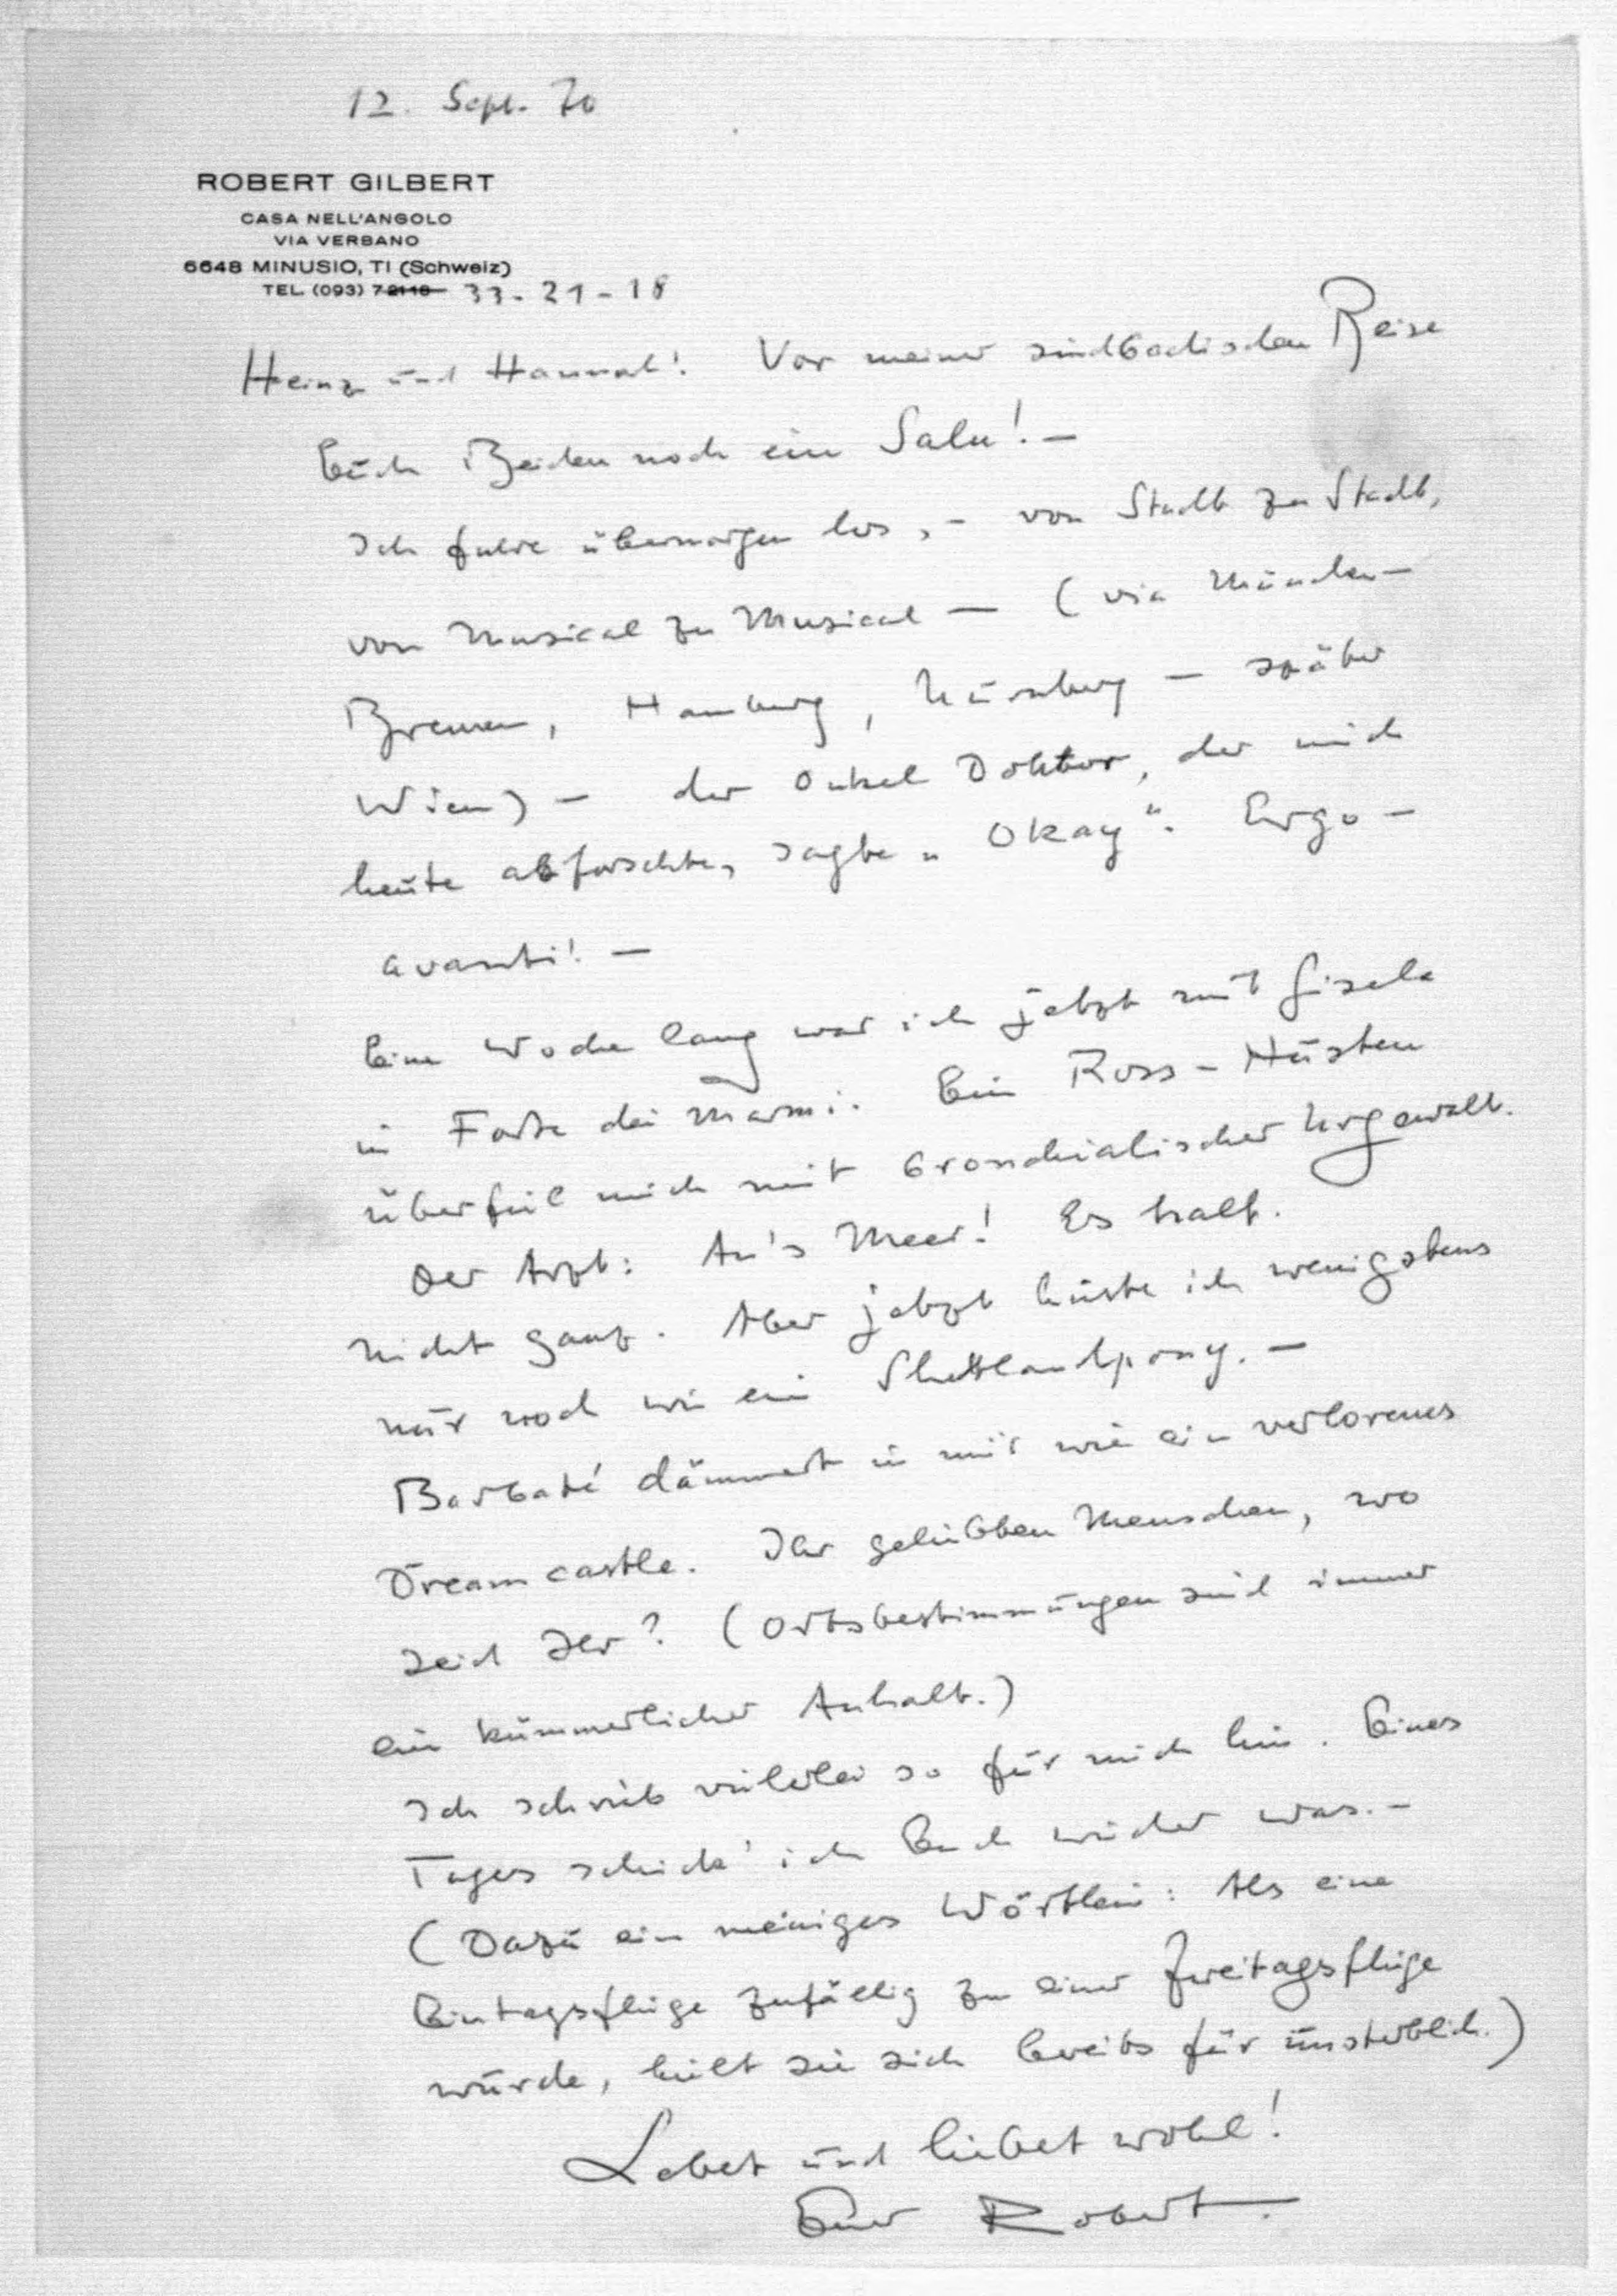 12. Sept. 70
ROBERT GILBERT
CASA NELL'ANGOLO
VIA VERBANO
6648 MINUSIO, TI (Schweiz)
TEL. (093) 7 2118 33-21-18
Heinz und Hannah! Vor meiner sindbadischen Reise
Euch Beiden noch ein Salu! —
Ich fahre übermorgen los, – von Stadt zu Stadt,
von Musical zu Musical — (via München —
Bremen, Hamburg, Nürnberg — später
Wien) — der Onkel Doktor, der mich
heute abforschte, sagte „Okay“. Ergo —
avanti! —
Eine Woche lang war ich jetzt mit Gisela
in Forte dei Marmi. Ein Ross-Husten
überfiel mich mit bronchialischer Urgewalt.
Der Arzt: An's Meer! Es half.
Nicht ganz. Aber jetzt huste ich wenigstens
nur noch wie ein Shettlandpony. —
Barbaté dämmert in mir wie ein verlorenes
Dreamcastle. Ihr geliebten Menschen, wo
seid Ihr? (Ortsbestimmungen sind immer
ein kümmerlicher Anhalt.)
Ich schrieb vielerlei so für mich hin. Eines
Tages schick' ich Euch wieder was. –
(Dazu ein meiniges Wörtlein: Als eine
Eintagsfliege zufällig zu einer Zweitagsfliege
wurde, hielt sie sich bereits für unsterblich.)
Lebet und liebet wohl!
Euer Robert.